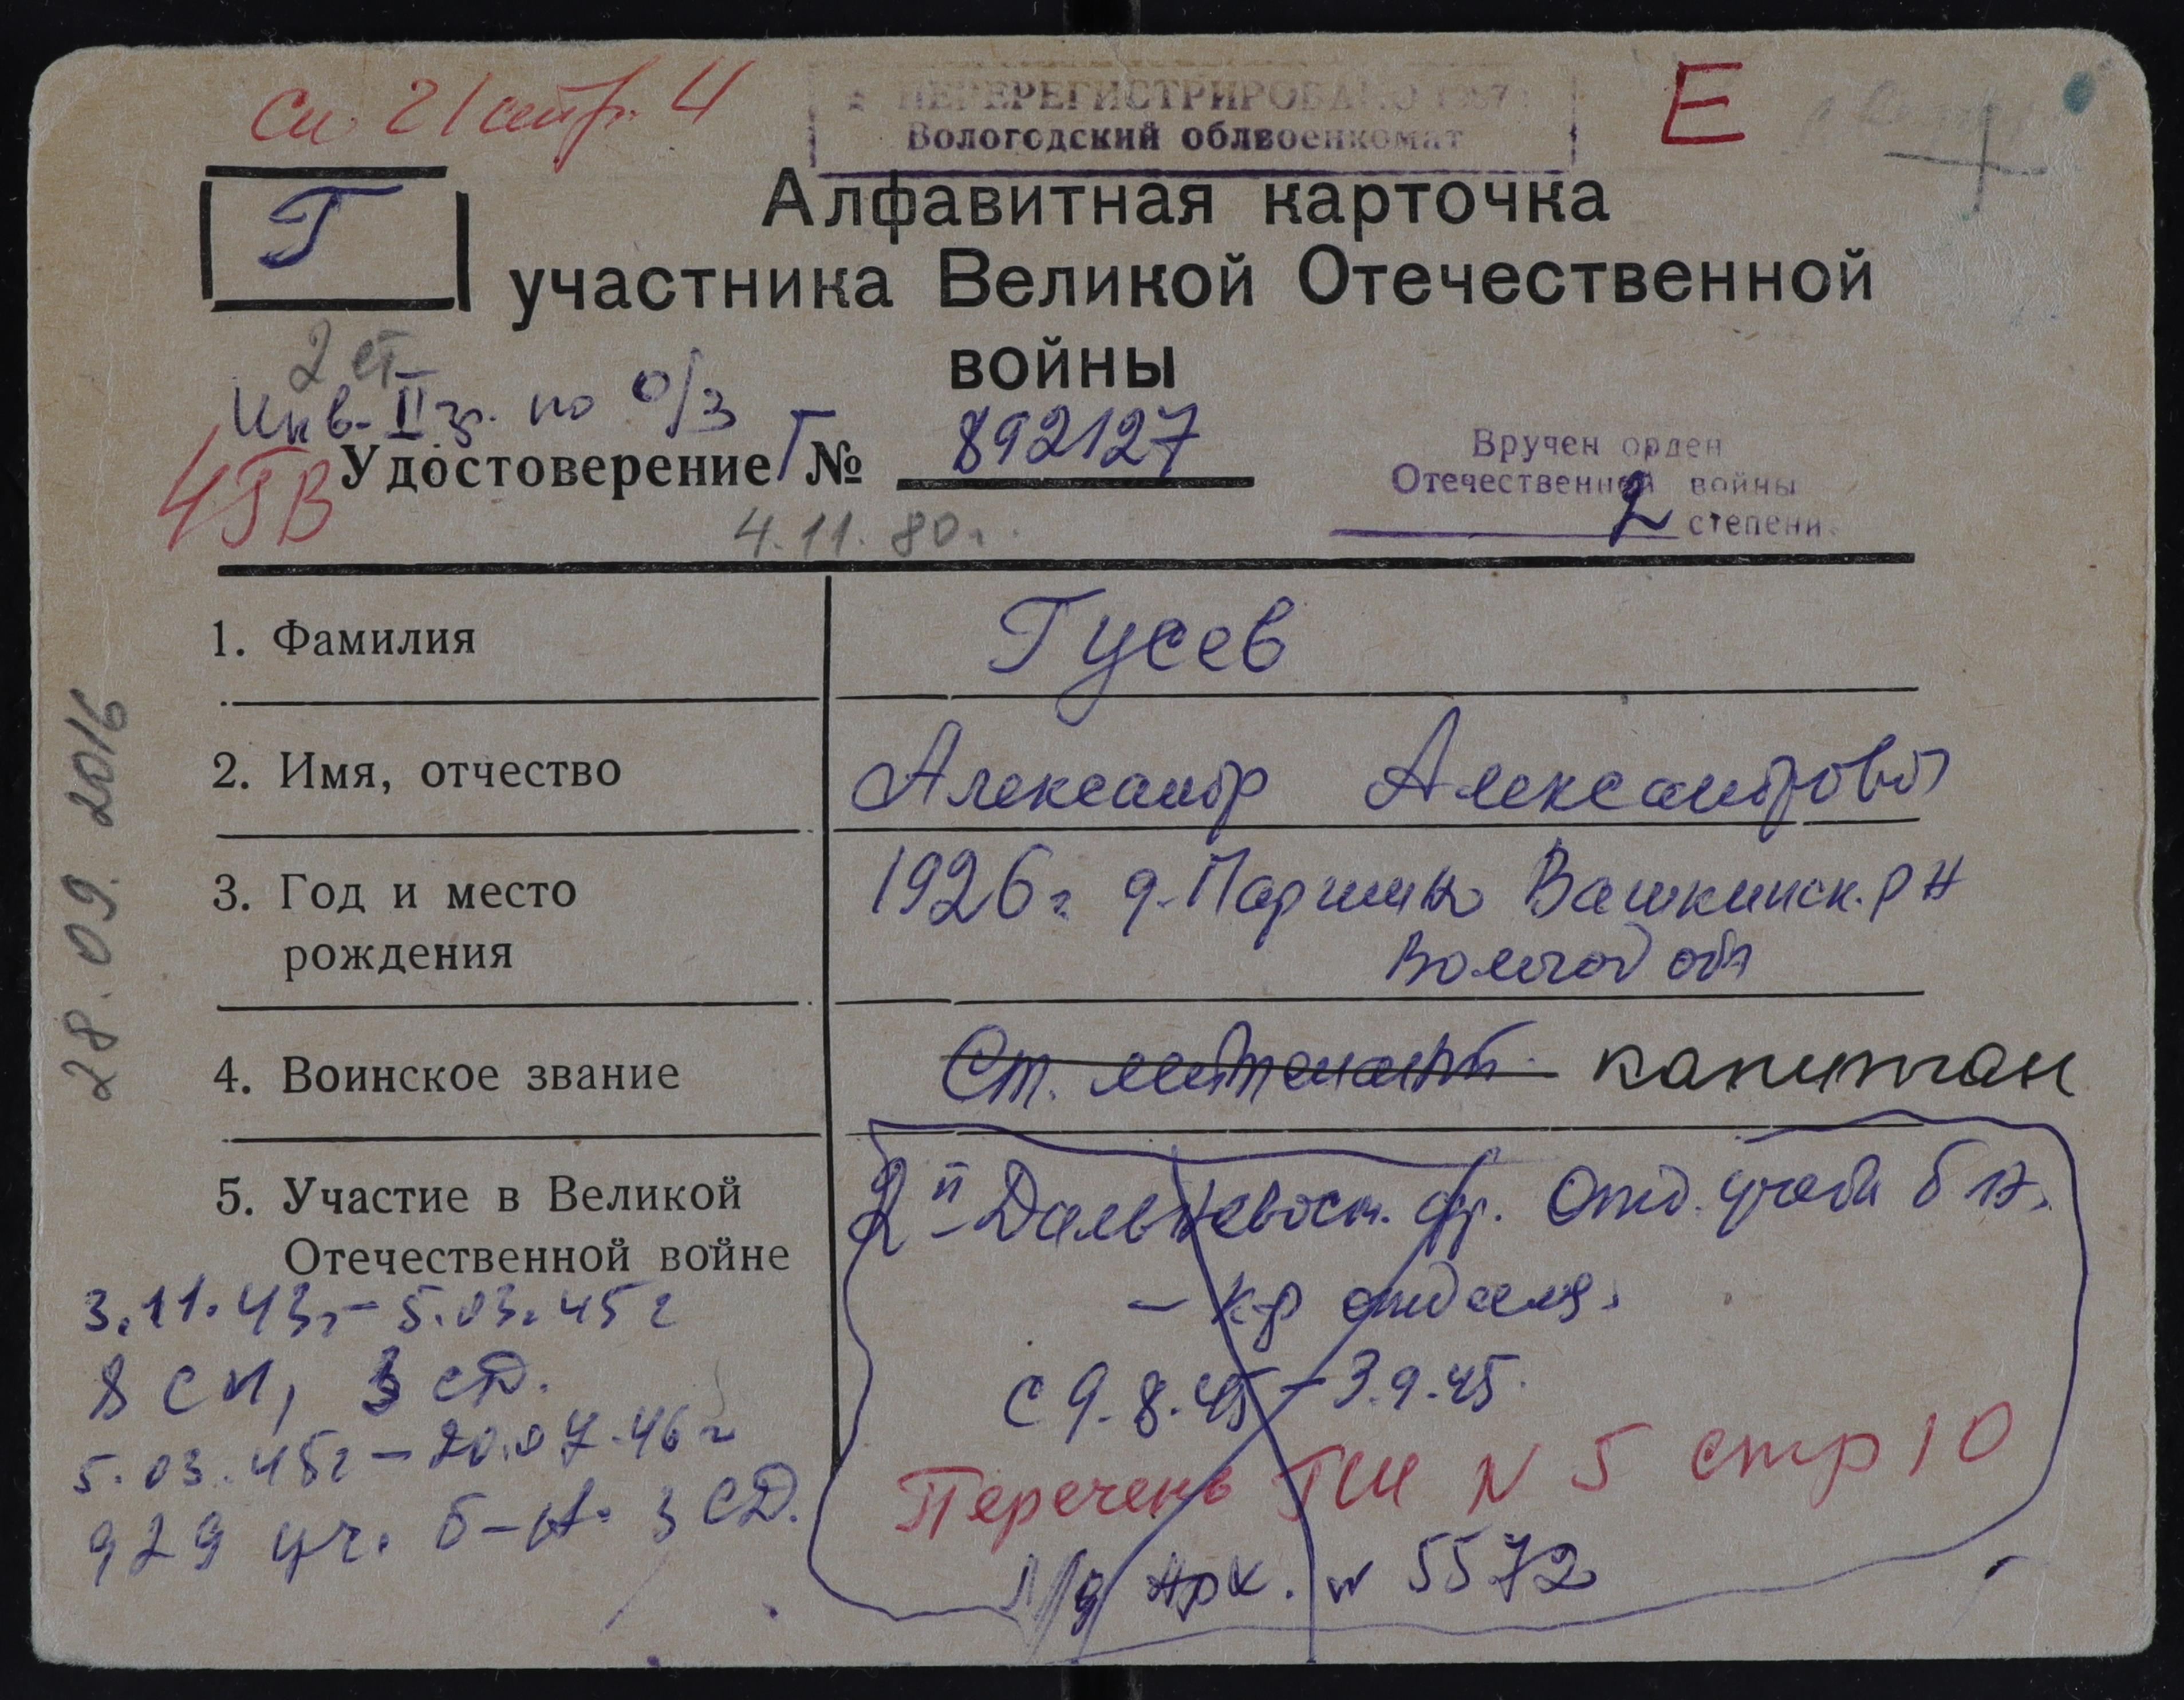 Сп. 21 стр. 4
ПЕРЕРЕГИСТРИРОВАНО 1987
Вологодский облвоенкомат
Е
Г
Алфавитная карточка
участника Великой Отечественной
войны
2 ст
Инв. II гр. по о/з
Удостоверение Г № 892127
4.11.80г.
Вручен орден
Отечественной войны
2 степени.
1. Фамилия Гусев
2. Имя, отчество Александр Александрович
3. Год и место рождения 1926г д. Вашкинск. р н
Вологод обл
4. Воинское звание Ст. лейтенант капитан
5. Участие в Великой
Отечественной войне
2й Дальневост. фр. Отд. учебн б н,
- к-р отделя.
с 9.8.45 - 3.9.45.
Перечень ГШ N 5 стр 10
5572
3.11.43г - 5.03.45г
8 СП, 3 СД.
5.03.45г - 20.07.46г
929 уч. б-н. 3 СД.
28.09.2016